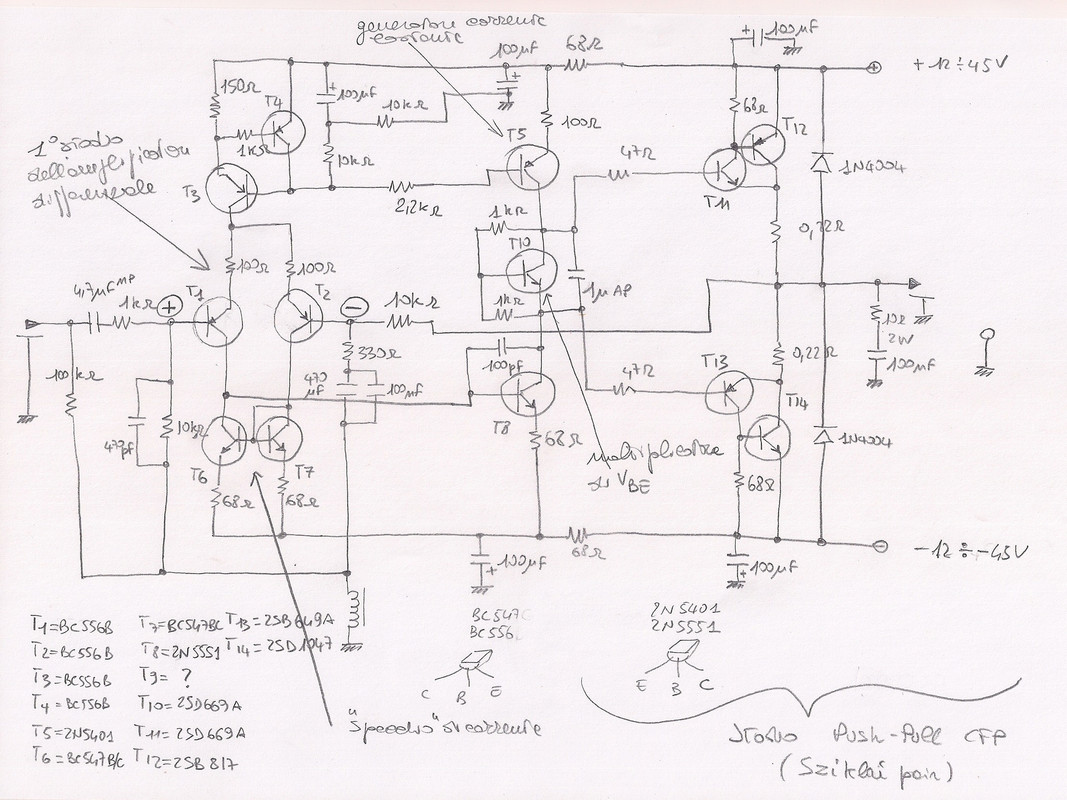 generatore corrente
costante
100µF
68Ω
100µF
+ 12÷45V
150Ω
T4
100µF
10kΩ
1kΩ
10kΩ
T5
100Ω
68Ω
T12
1° stadio
dell'amplificatore
differenziale
T3
2,2kΩ
47Ω
T11
1N4004
1kΩ
T10
0,22Ω
100Ω
100Ω
4,7µF MP
1kΩ
+
T1
T2
−
10kΩ
1kΩ
1µAP
330Ω
100pf
10Ω
2W
100nF
100kΩ
470
µF
100nF
T13
0,22Ω
47Ω
T14
47pf
10kΩ
T8
68Ω
1N4004
T6
T7
moltiplicatore
di VBE
68Ω
68Ω
68Ω
68Ω
−12÷−45V
+100µF
+100µF
T1=BC556B
T7=BC547BC
T13=2SB649A
T2=BC556B
T8=2N5551
T14=2SD1047
T3=BC556B
T9= ?
T4=BC556B
T10=2SD669A
T5=2N5401
T11=2SD669A
T6=BC547B/C
T12=2SB817
BC547C
BC556
C B E
2N5401
2N5551
E B C
"Specchio" di corrente
Stadio Push-Pull CFP
(Sziklai pair)